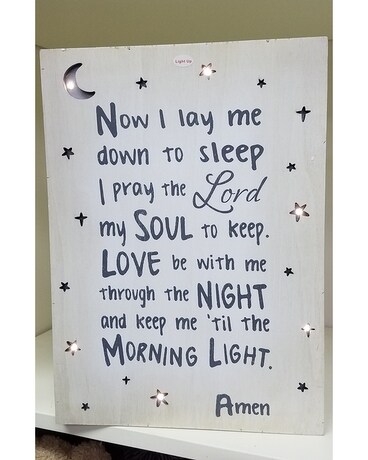 Light Up
Now I lay me
down to sleep
I pray the Lord
my SOUL to keep.
LOVE be with me
through the NIGHT
and keep me 'til the
MORNING LIGHT.
Amen